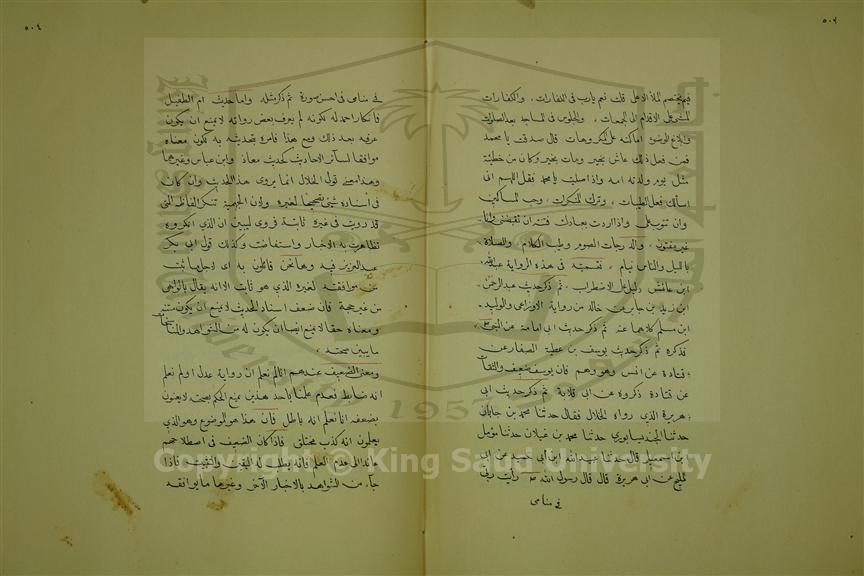 ٥٠٢
فيم يختصم الملأ الاعلى قلت نعم يارب في الكفارات، والكفارات
المشي على الاقدام الى الجمعات، والجلوس في المساجد بعد الصلوات
وابلاغ الوضوء اماكنه على المكروهات قال صدقت يا محمد
فمن فعل ذلك عاش بخير ومات بخير وكان من خطيئته
مثل يوم ولدته امه واذا صليت يا محمد فقل اللهم انى
اسألك فعل الطيبات، وترك المنكرات، وحب المساكين
وان تتوب على واذا اردت بعبادك فتنة ان تقبضني وانا
غير مفتون، والدرجات الصوم وطيب الكلام والصلاة
بالليل والناس نيام، تسمية في هذه الرواية عبد الله
ابن عائش دليل على الاضطراب، ثم ذكر حديث عبد الرحمن
ابن زيد بن جابر عن خالد من رواية الاوزاعى والوليد
ابن مسلم كلاهما عنه ثم ذكر حديث ابى امامة عن النبي ص
فذكره ثم ذكر حديث يوسف بن عطية الصفار عن
قتادة عن انس وهو وهم فان يوسف ضعيف والثقات
عن قتادة ذكروه عن ابى قلابة ثم ذكر حديث ابى
هريرة الذي رواه الخلال فقال حدثنا محمد بن
حدثنا محمد بن غيلان حدثنا مؤمل
ابن اسمعيل قال حدثنا عبيد الله ابن ابي حميد عن ابى
المليح عن ابى هريرة قال قال رسول الله ص رأيت ربي
في منامى
٥٠٤
في منامى في احسن صورة ثم ذكر مثله واما حديث ام الطفيل
فانكار احمد له لكونه لم يعرف بعض رواته لا يمنع ان يكون
عرفه بعد ذلك ومع هذا فامره بتحديثه به لكون معناه
موافقا لسائر الاحاديث كحديث معاذ وابن عباس وغيرهما
وهذا معنى قول الخلال انما يروى هذا الحديث وان كان
في اسناده شئ تصحيحا لغيره ولان الجهمية تنكر الفاظه التى
قد رويت في غيره ثابتة فروى ليبين ان الذي انكروه
تظاهرت به الاخبار واستفاضت وكذلك قول ابى بكر
عبد العزيز فيه وهاء ونحن قائلون به اى لاجل ما ثبت
من موافقته لغيره الذي هو ثابت لا انه يقال بالواهى
من غير حجة فان ضعف اسناد الحديث لا يمنع ان يكون متنه
ومعناه حقا ولا يمنع ايضا ان يكون له من الشواهد والمتابعات
ما يبين صحته،
ومعنى الضعيف عندهم انا لم نعلم ان رواية عدل اولم نعلم
انه ضابط فعدم علمنا باحد هذين يمنع الحكم بصحته لا يعنون
بضعفه انا نعلم انه باطل فان هذا هو الموضوع وهو الذي
يعلمون انه كذب مختلق فاذا كان الضعيف في اصطلاحهم
عائدا الى عدم العلم فانه يطلب له اليقين والتثبيت فاذا
جاء من الشواهد بالاخبار الآخر وغيرها ما يوافقه
Copyright © King Saud University
1957